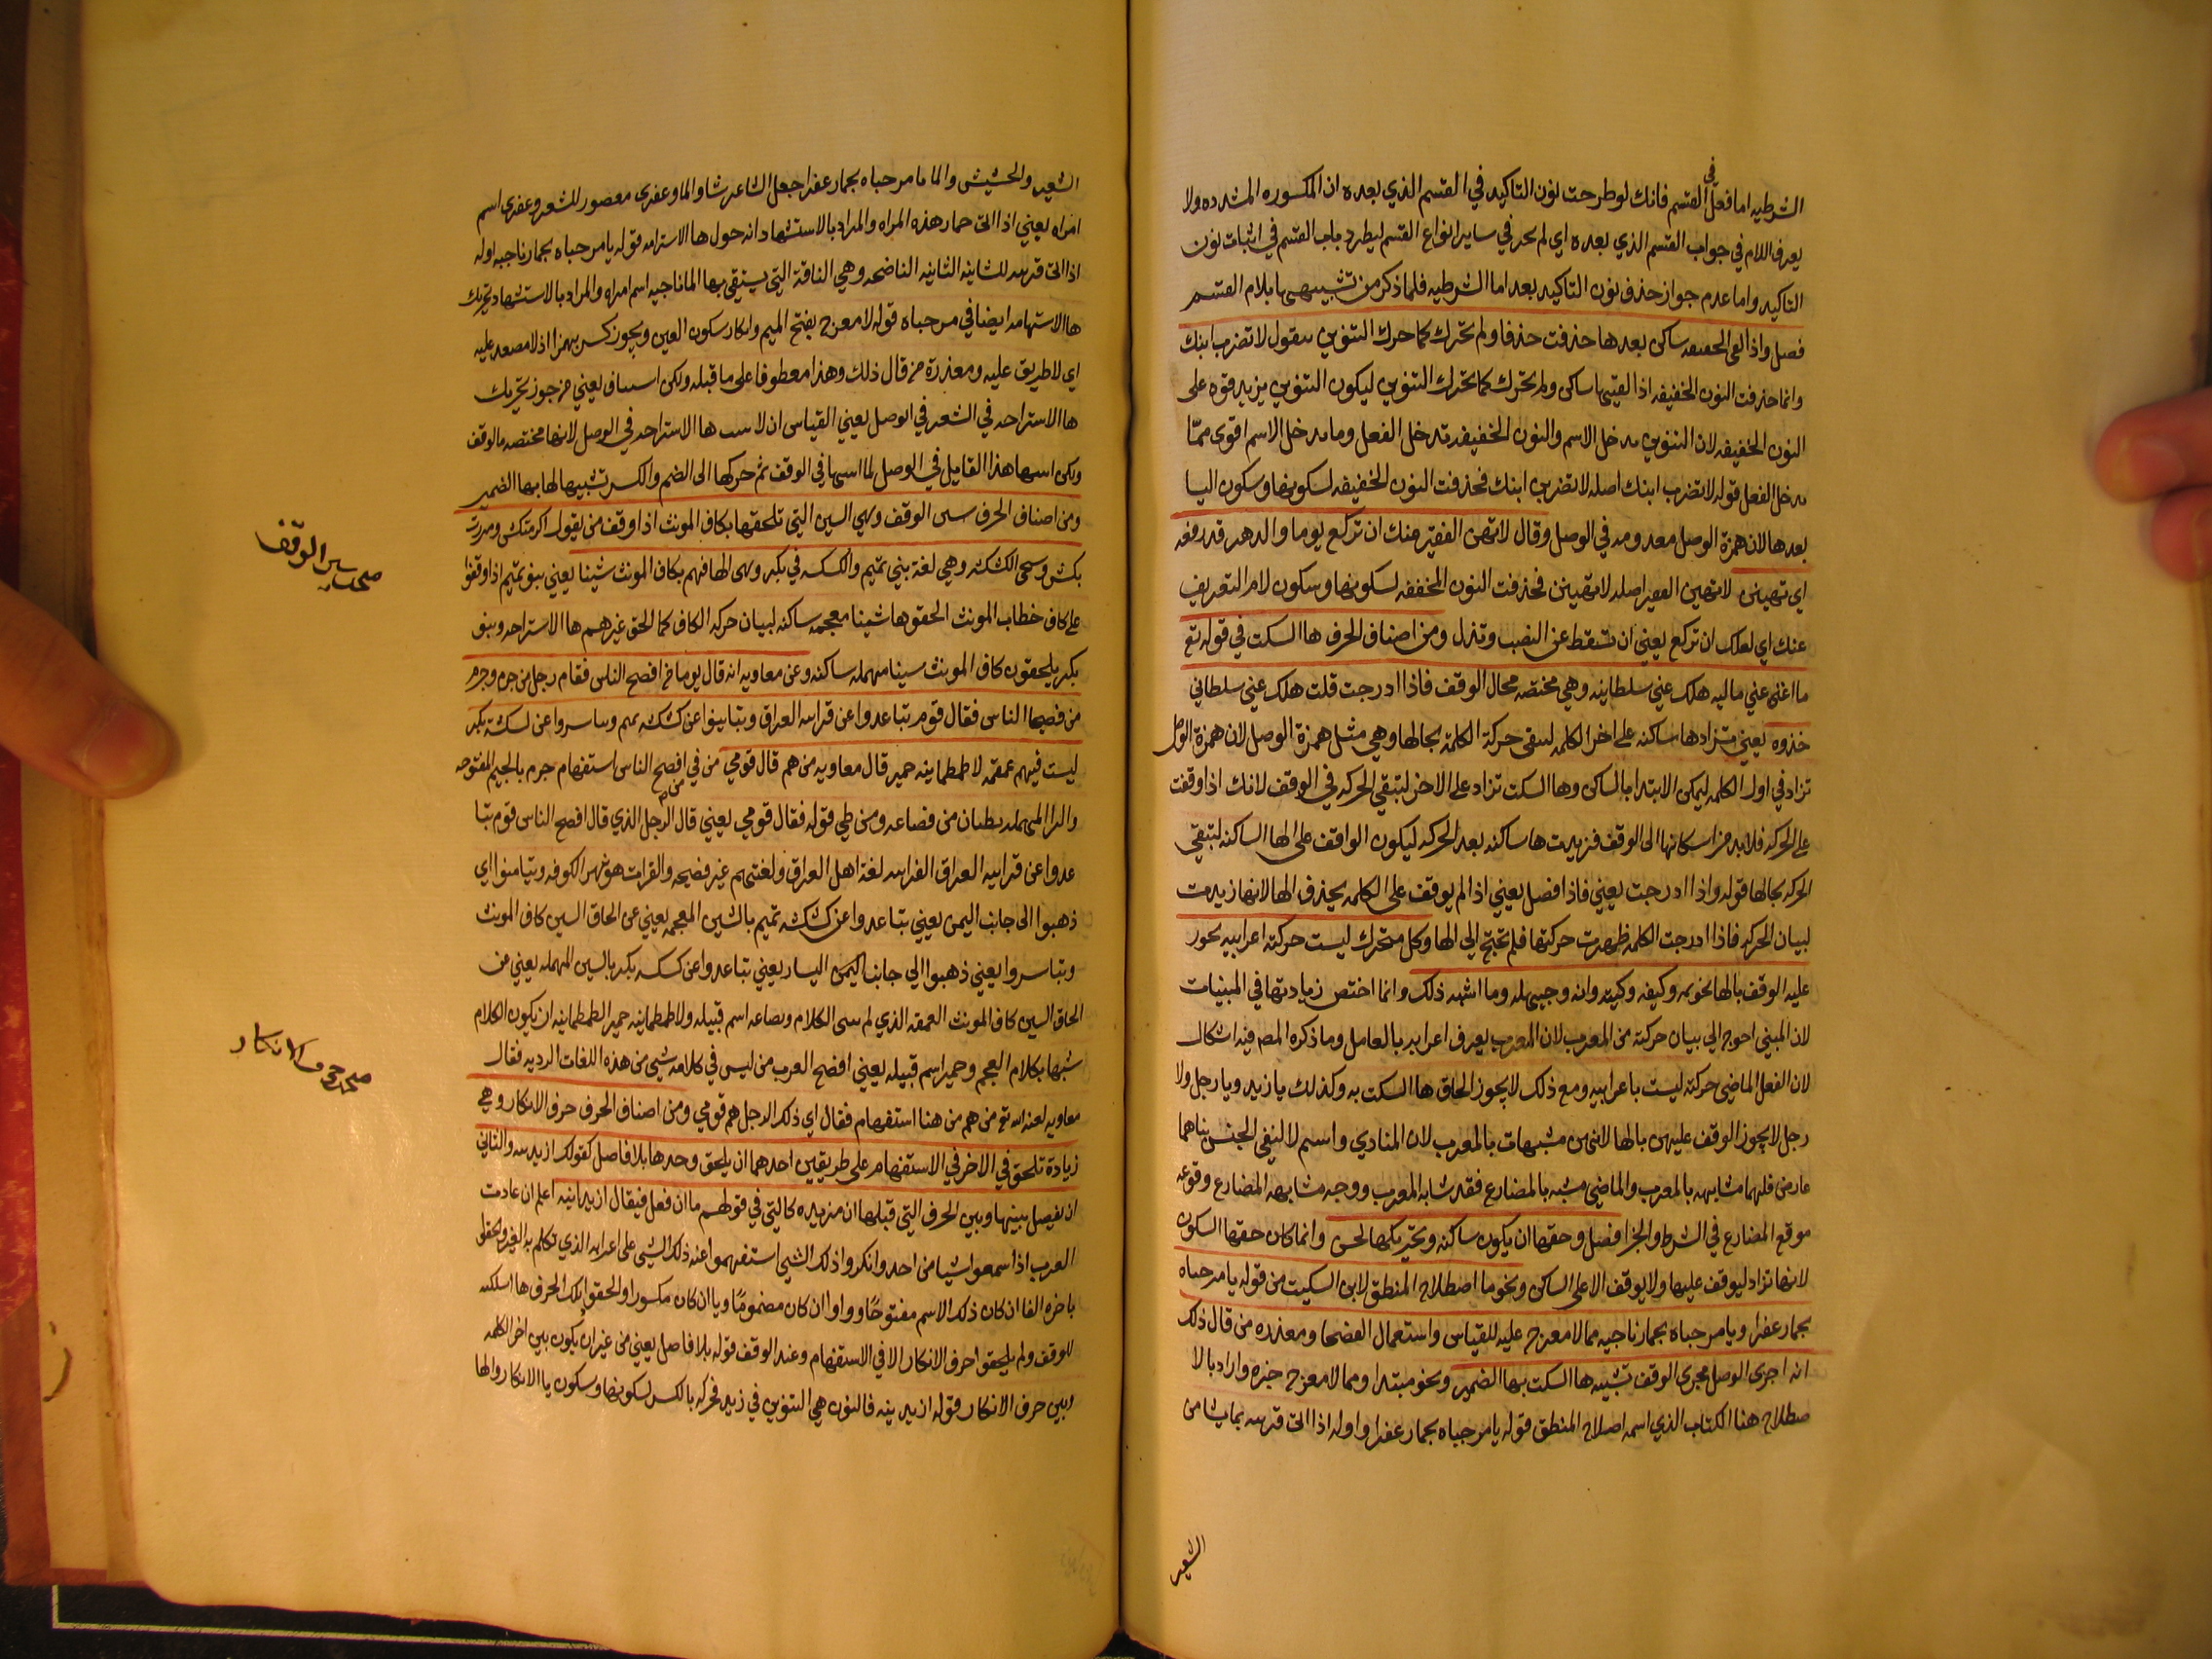 الشرطيه اما في فعل القسم فانك لو طرحت نون التاكيد في القسم الذي بعده ان المكسوره المشدده ولا
يعرف اللام في جواب القسم الذي بعده اي لم يحز في ساير انواع القسم ليطرد باب القسم في اثبات نون
التاكيد واما عدم جواز حذف نون التاكيد بعد اما الشرطيه فلما ذكر من تشبيهها بلام القسم
فصل واذا لقى الخفيفه ساكن بعدها حذفت حذفا ولم تحرك كما حرك التنوين يقول لا تضرب ابنك
وانما حذفت النون الخفيفه اذا لقيها ساكن ولم تحرك كما تحرك التنوين ليكون التنوين يزيد قوه على
النون الخفيفه لان التنوين يدخل الاسم والنون الخفيفه تدخل الفعل وما يدخل الاسم اقوى ممّا
يدخل الفعل قوله لا تضرب ابنك اصله لا تضربن ابنك فحذفت النون الخفيفه لسكونها وسكون اليا
بعدها لان همزة الوصل في الوصل وقال لا تهين الفقير منك ان تركع يوما والدهر قد رفعه
اي تهينن لا تهين الفقير اصله لا تهينن فحذفت النون المخففه لسكونها وسكون لام التعريف
عنك اي لعلك ان تركع يعني ان تسقط عن النصب وتذل ومن اصناف الحرف ها السكت في قوله تع
ما اغنى عني ماليه هلك عني سلطانيه وهي مختصه بحال الوقف فاذا ادرجت قلت هلك عني سلطاني
خذوه يعني تزاد ها ساكنه على اخر الكلمه لتبقى حركة الكلمة بحالها وهي مثل همزة الوصل لان همزة الوصل
تزاد في اول الكلمه ليمكن الابتدا بالساكن وها السكت تزاد على الاخر لتبقى الحركه في الوقف لانك اذا وقفت
على الحركه فلا بد من اسكانها الى الوقف فزيدت ها ساكنه بعد الحركه ليكون الواقف على الها الساكنه لتبقى
الحركه بحالها قوله واذا ادرجت يعني فاذا افصل يعني اذا لم يوقف على الكلمه يحذف الها لانها زيدت
لبيان الحركه فاذا ادرجت الكلمه ظهرت حركتها فلم تحتج الى الها وكل متحرك ليست حركته اعرابيه يجوز
عليه الوقف بالها نحو ثمه وكيفه وكيته وانه وحيهله وما اشبه ذلك وانما اختص زيادتها في المبنيات
لان المبني احوج الي بيان حركته من المعرب لان المعرب يعرف اعرابه بالعامل وما ذكره المص فيه اشكال
لان الفعل الماضي حركته ليست باعرابيه ومع ذلك لا يجوز الحاق ها السكت به وكذلك يا زيد ويا رجل ولا
رجل لا يجوز الوقف عليهن بالها لانهن مشبهات بالمعرب لان المنادي واسم لا لنفي الجنس بناهما
عارض فلهما مشابهه بالمعرب والماضي مشبه بالمضارع فقد شابه المعرب ووجه مشابهه المضارع وقوعه
موقع المضارع في الشرط والجزا فصل وحقها ان يكون ساكنه وتحريكها لحن وانما كان حقها السكون
لانها تزاد ليوقف عليها ولا يوقف الا على الساكن ونحو ما اصطلاح المنطق لابن السكيت من قوله يا مرحباه
بحمار عفرا ويا مرحباه بحمار ناجيه مما لا معرج عليه للقياس واستعمال الفصحا ومعذره من قال ذلك
انه اجرى الوصل مجرى الوقف تشبيه ها السكت بها الضمير ونحو مبتدا ومما لا معرج خبره واراد بالا
صطلاح هنا الكتاب الذي اسمه اصلاح المنطق قوله يا مرحباه بحمار عفرا واوله اذا اتى قربته بما شا من
الشعير
الشعير والحشيش والما يا مرحباه بحمار عفرا جعل الشاعر شا والما وعفرى مقصور للشعر وعفرى اسم
امراه يعني اذا اتى حمار هذه المراه والمراد بالاستشهاد انه حول ها الاستراحه قوله يا مرحباه بحمار ناجيه اوله
اذا اتى قربته للسانيه السانيه الناضحه وهي الناقة التي يستقي بها الما ناجيه اسم امراه والمراد بالاستشهاد تحريك
ها الاستراحه ايضا في مرحباه قوله لا معرج بفتح الميم والرا وسكون العين ويجوز كسر اذ لا مصعد عليه
اي لا طريق عليه ومعذرة من قال ذلك وهذا معطوفا على ما قبله ولكن استيناف يعني من جوز تحريك
ها الاستراحه في الشعر في الوصل يعني القياس ان لا يثبت ها الاستراحه في الوصل لانها مختصه بالوقف
ولكن اثبتها هذا القايل في الوصل لما اثبتها في الوقف ثم حركها الى الضم والكسر تشبيها لها بها الضمير
ومن اصناف الحرف سين الوقف وهي السين التي تلحقها بكاف المونث اذا وقف من يقول اكرمتكش ومررت
بكش وتسمى الكشكشه وهي لغة بني تميم والكسكسه في بكر وهي الحاقهم بكاف المونث شينا يعني بنو تميم اذا وقفوا
على كاف خطاب المونث الحقوها شينا معجمه ساكنه لبيان حركه الكاف كما الحق غيرهم ها الاستراحه وبنو
بكر يلحقون كاف المونث سينا مهمله ساكنه وعن معاويه انه قال يوما من افصح الناس فقام رجل من جرم وجرم
من فصحا الناس فقال قوم تباعدوا عن قراتيه العراق وتيامنوا عن كشكشه تميم وتياسروا عن كسكسه بكر
ليست فيهم غمغمه لا طمطمانيه حمير قال معاويه من هم قال قومي من في افصح الناس استفهام جرم بالجيم المفتوحه
والرا المهمله بطنان من قضاعه ومن طي قوله فقال قومي يعني قال الرجل الذي قال افصح الناس قوم تبا
عدوا عن قراتيه العراق الفراتيه لغة اهل العراق ولغتهم غير فصيحه والفرات هو نهر الكوفه وتيامنوا اي
ذهبوا الى جانب اليمن يعني تباعدوا عن كشكشه تميم بالشين المعجمه يعني عن الحاق الشين كاف المونث
وتياسروا يعني ذهبوا الي جانب اليسار يعني تباعدوا عن كسكسه بكر بالسين المهمله يعني عن
الحاق السين كاف المونث الغمغمه الذي لم يبين الكلام وقضاعه اسم قبيله ولا طمطمانيه حمير الطمطمانيه ان يكون الكلام
شبها بكلام العجم وحمير اسم قبيله يعني افصح العرب من ليس في كلامه شي من هذه اللغات الرديه فقال
معاويه لعنه الله تع من هم من هنا استفهام فقال اي ذلك الرجل هم قومي ومن اصناف الحرف حرف الانكار وهي
زيادة تلحق في الاخر في الاستفهام على طريقين احدهما ان يلحق وحدها بلا فاصل كقولك ازيدنيه والثاني
ان يفصل بينها وبين الحرف التي قبلها ان مزيده كالتي في قولهم ما ان فعل فيقال ازيد انيه اعلم ان عادت
العرب اذا سمعوا شيا من احد وانكروا ذلك الشي استفهموا عنه ذلك الشي على اعرابه الذي تكلم به الغير ولحقوا
باخره الفا ان كان ذلك الاسم مفتوحًا وواوا ان كان مضمومًا ويا ان كان مكسورا والحقوا تلك الحرف ها السكته
للوقف ولم يلحقوا حرف الانكار الا في الاستفهام وعند الوقف قوله بلا فاصل يعني من غير ان يكون بين اخر الكلمه
وبين حرف الانكار قوله ازيدنيه فالنون هي التنوين في زيد فحركه بالكسر لسكونها وسكون يا الانكار والها
سين الوقف
الانكار